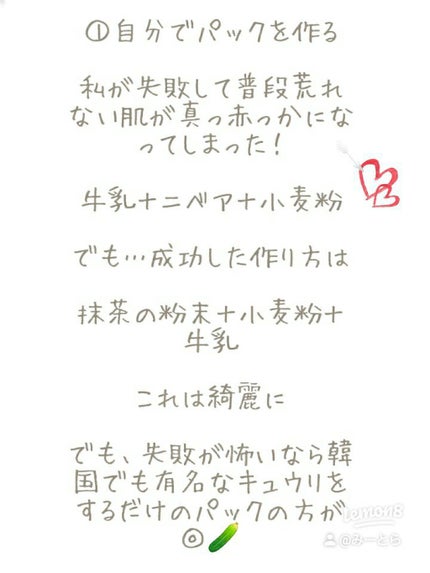 ①自分でパックを作る
私が失敗して普段荒れ
ない肌が真っ赤っかにな
ってしまった！
牛乳＋ニベア＋小麦粉
でも…成功した作り方は
抹茶の粉末＋小麦粉＋
牛乳
これは綺麗に
でも、失敗が怖いなら韓
国でも有名なキュウリを
するだけのパックの方が
◎🥒
lemon8
@みーとら